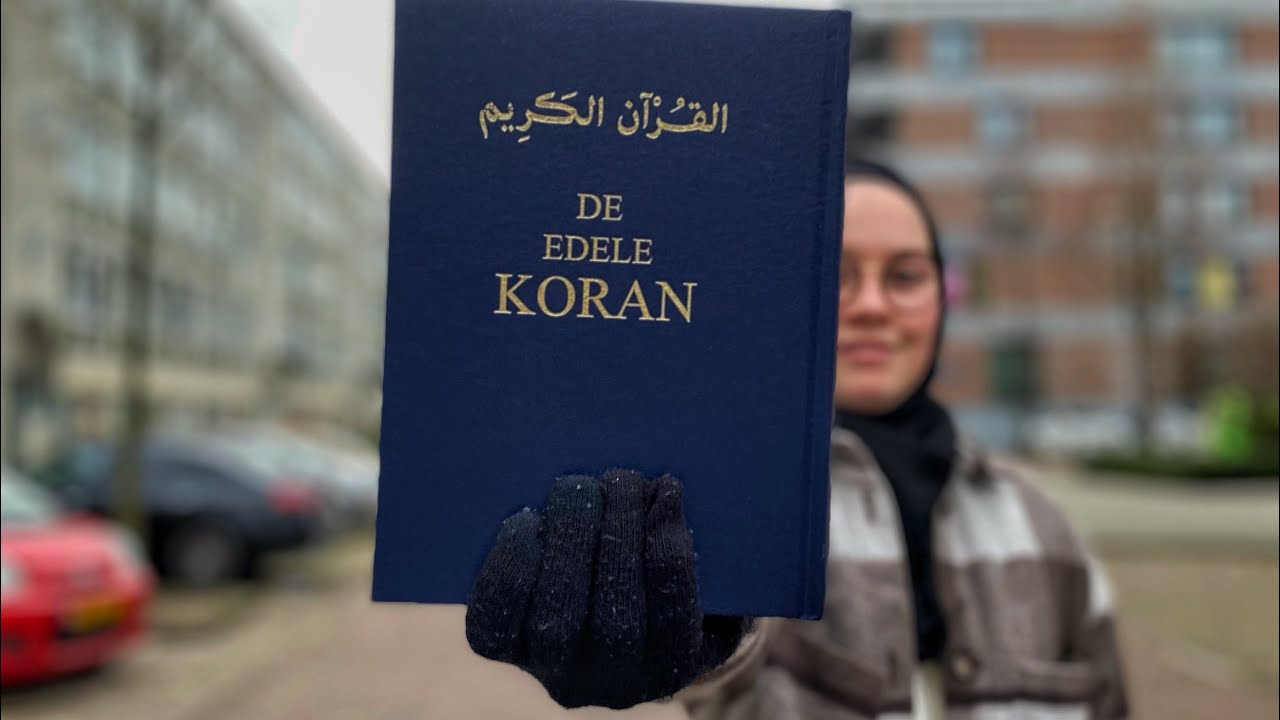 القُرْآن الكَرِيم
DE
EDELE
KORAN